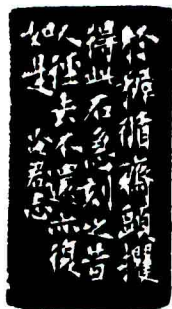 於循齋頭攫
得此石急刻之昔
人徑去不還亦復
如是 君志